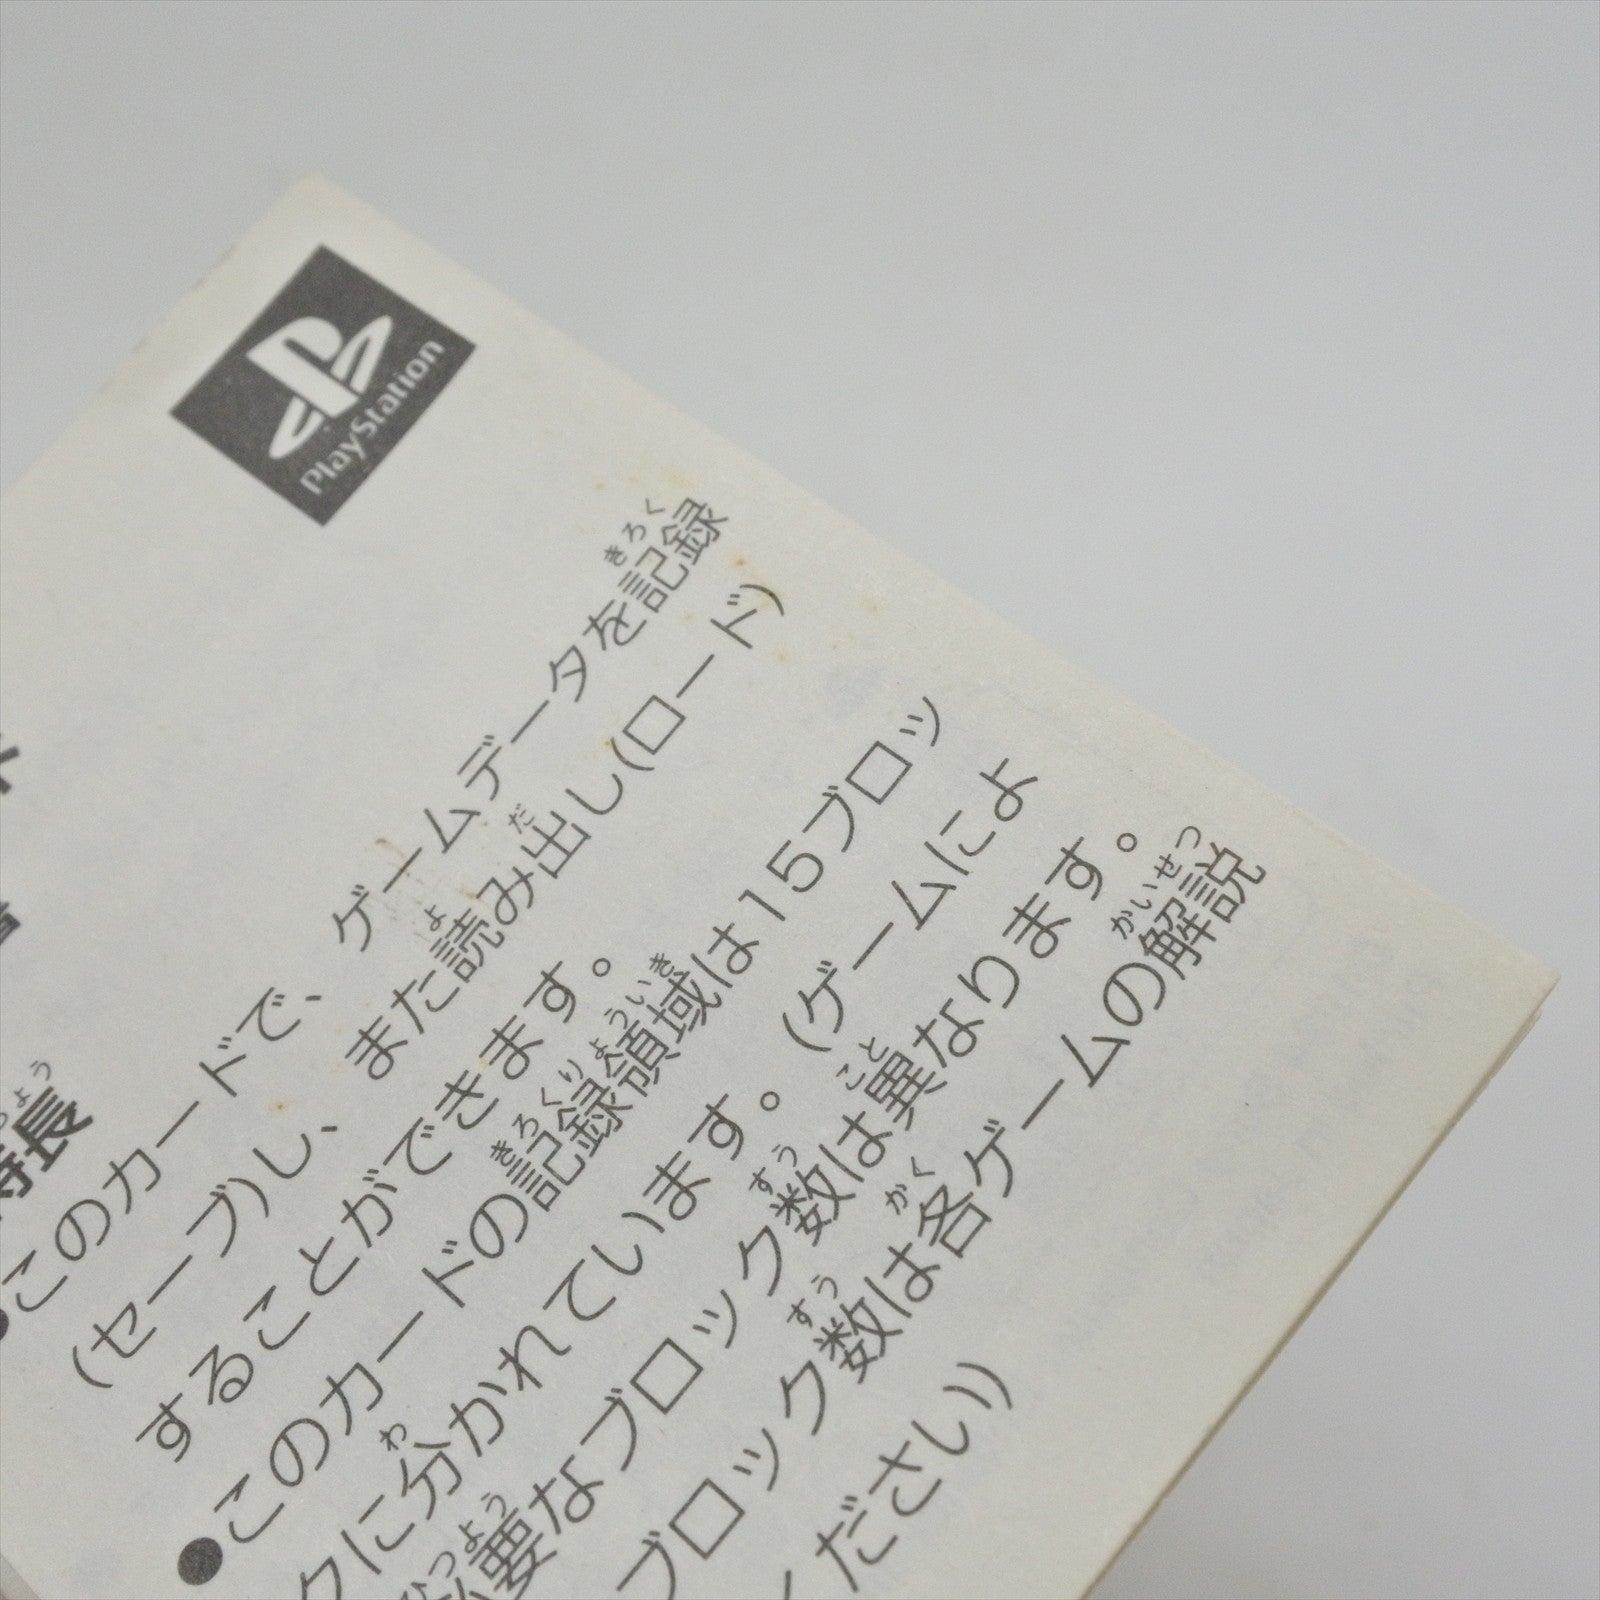 PlayStation
特長
●このカードで、ゲームデータを記録
(セーブ)し、また読み出し(ロード)
することができます。
●このカードの記録領域は15ブロッ
クに分かれています。(ゲームによ
要なブロック数は異なります。
ブロック数は各ゲームの解説
ください)